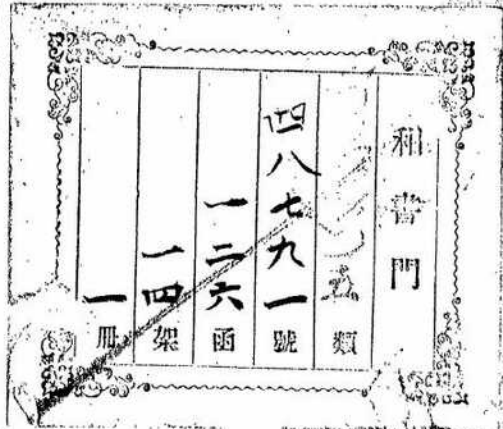 和書門
類
四八七九一號
一二六函
一四架
一冊